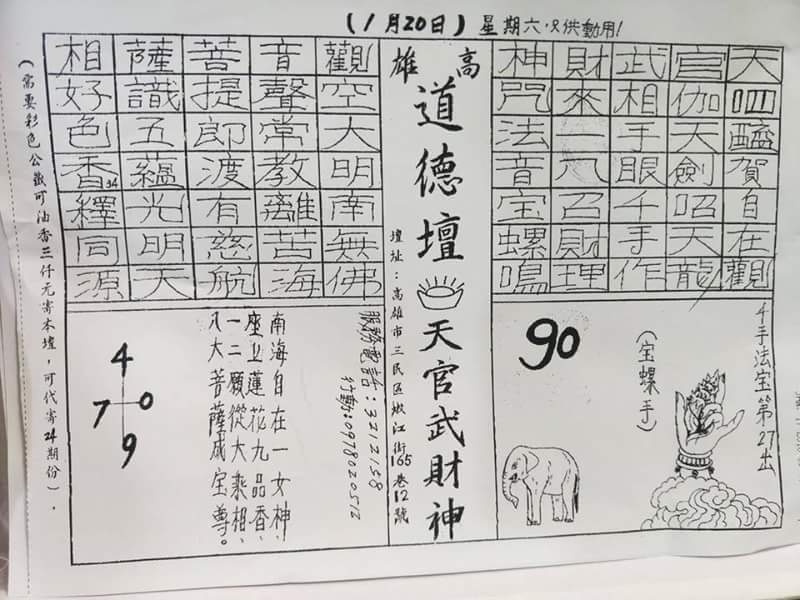 (1月20日)星期六,只供動用!
天呬醯賀自在觀
官伽天劍天龍
武相手眼千手作
財來一召財理
神咒法音宝螺鳴
千手法宝第27出
(宝螺手)
90
高雄
道德壇
天官武財神
壇址:高雄市三民區嫩江街165巷12號
觀空大明南無佛
音聲常教離苦海
菩提郎渡有慈航
薩識五蘊光明天
相好色香釋同源
服務電話:3212158
行動:0978020512
南海自在一女神、
座上蓮花九品香、
一二願從大乘相、
八大菩薩成宝尊。
4
7 0
9
(需要彩色公徽可油香三仟元寄本壇,可代寄24期份).